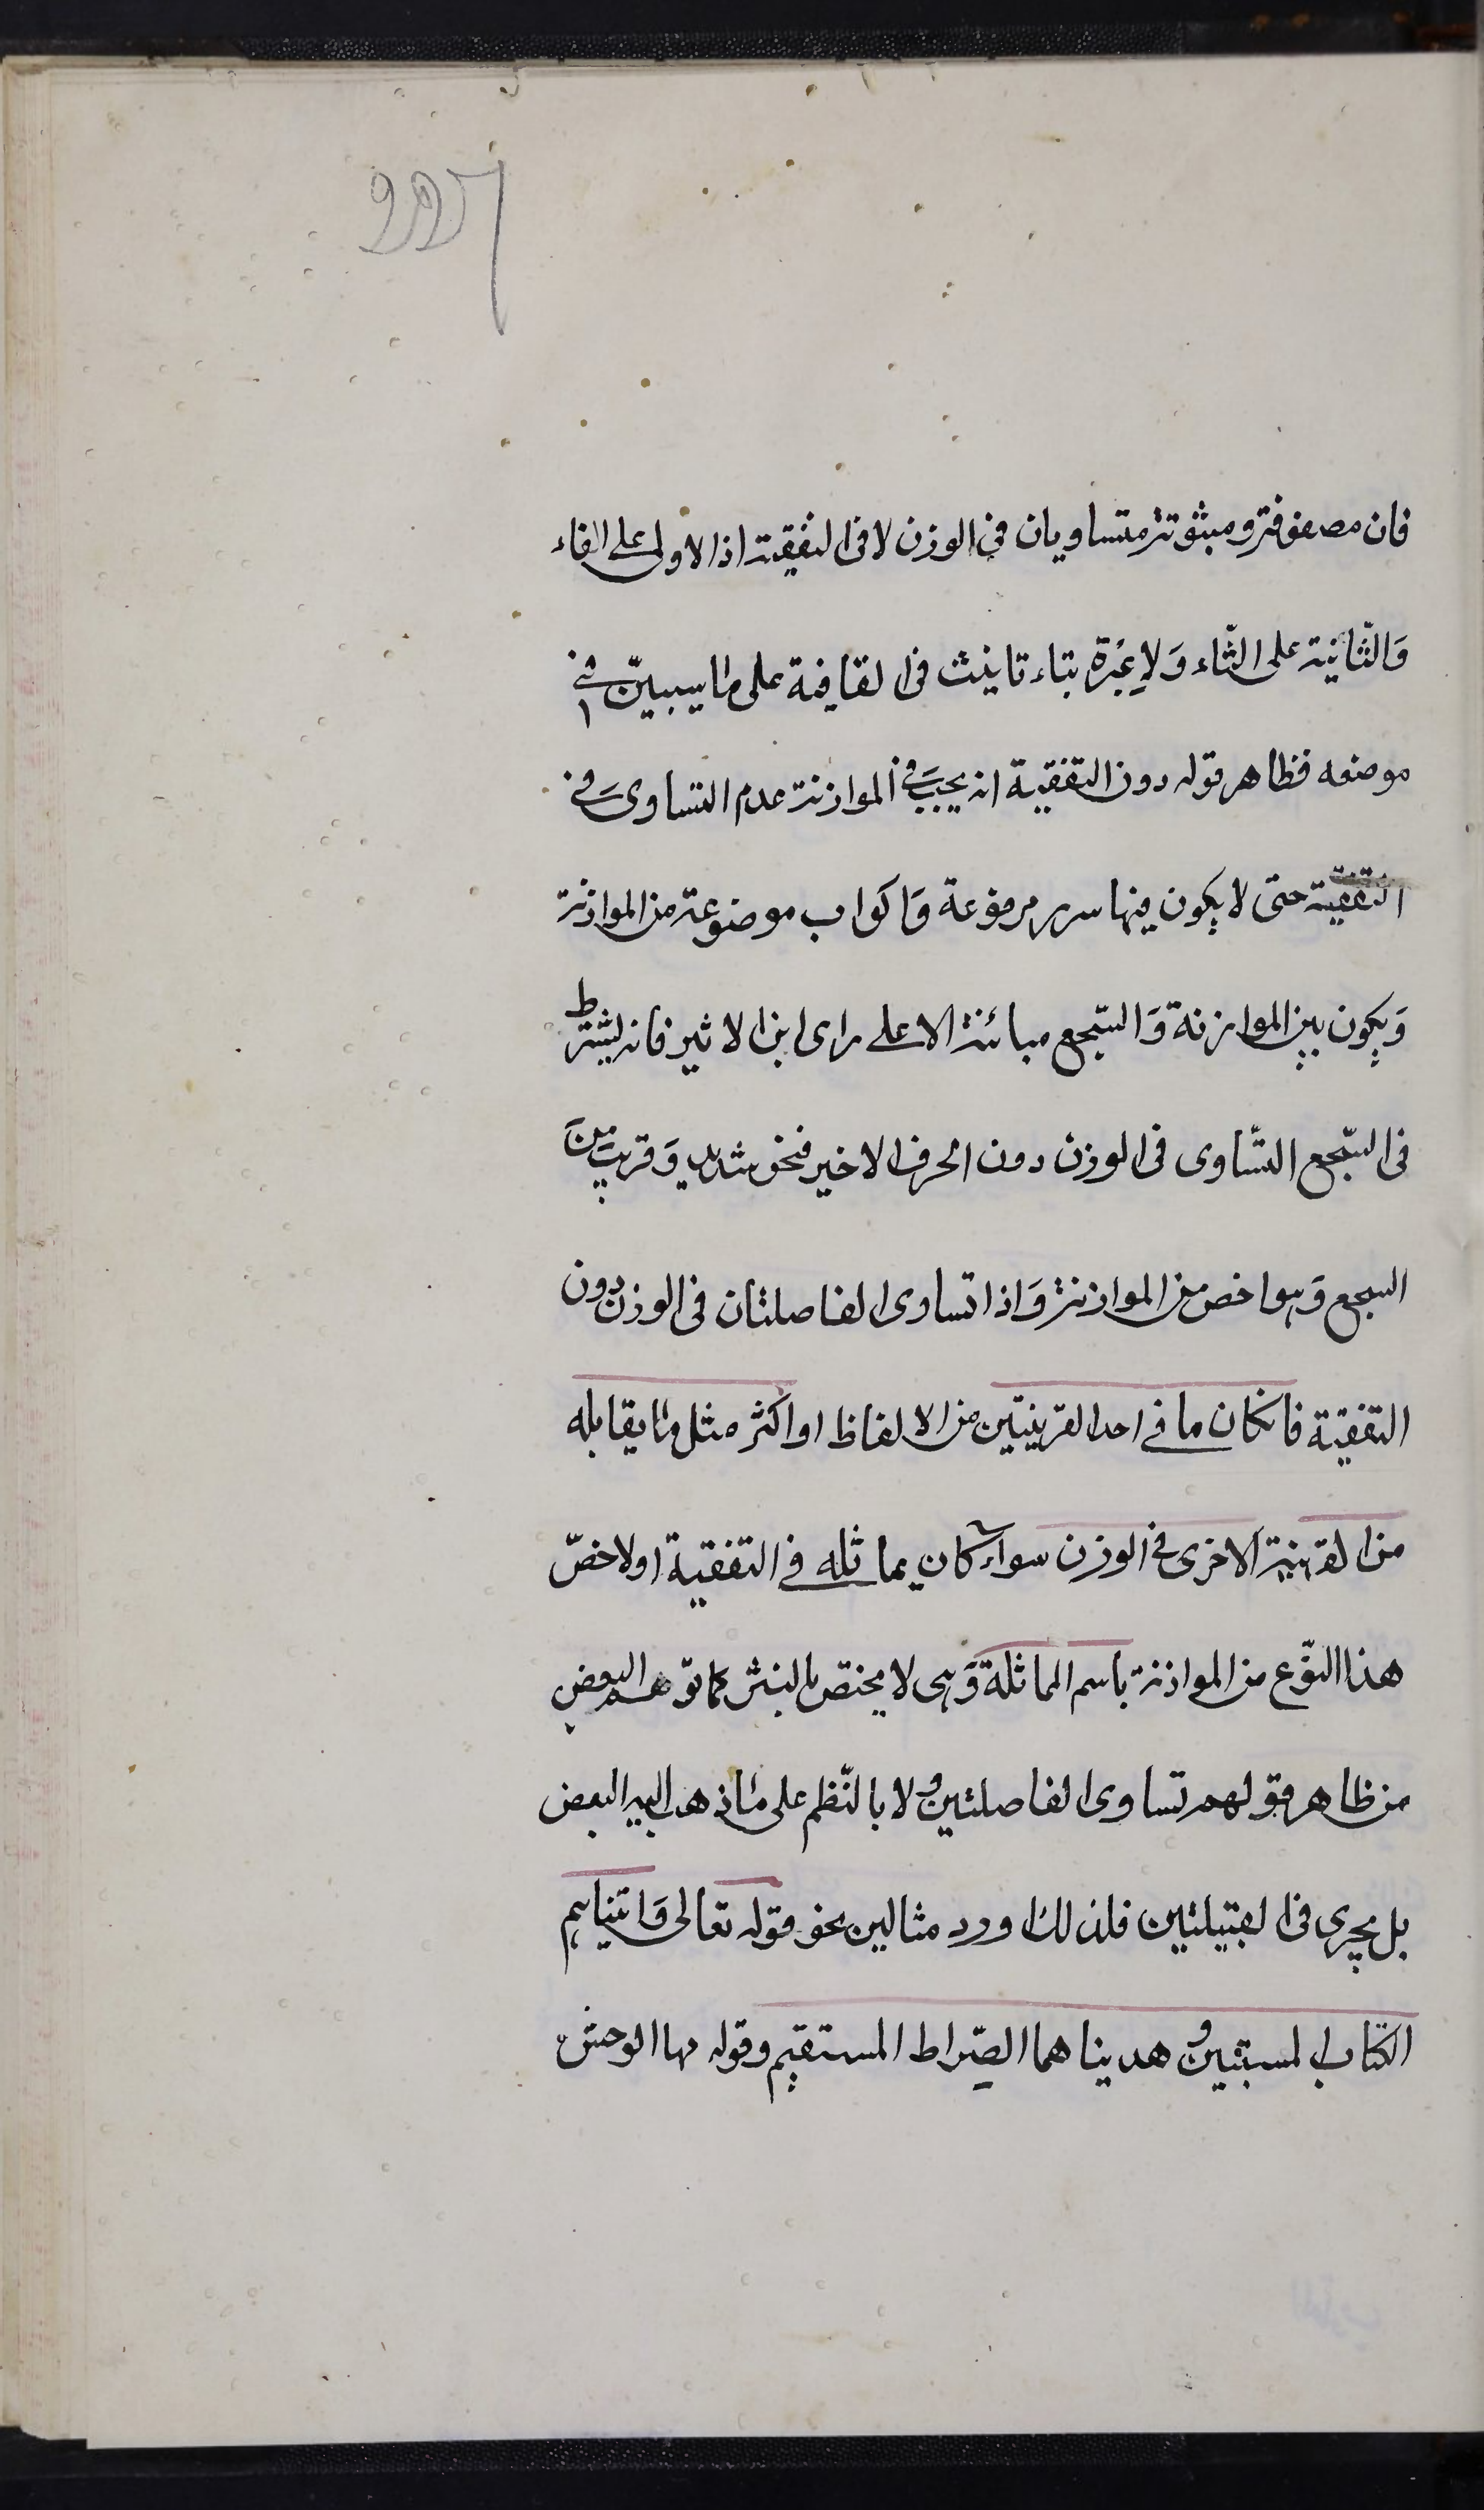 فان مصفوفة ومبثوثة متساويان في الوزن لا في التقفية اذ الاولى على الفاء
وَالثّانية على الثّاء وَلا عِبْرة بتاء تانيث في القافية على ما سيبيّن في
موضعه فظاهر قوله دون التقفية انه يجب في الموازنة عدم التساوى في
التقفية حتى لا يكون فيها سرر مرفوعة وَاكواب موضوعة من الموازنة
وَيكون بين الموازنة وَالسّجع مبائنة الا على راى ابن الاثير فانه يشترط
في السّجع التّساوى في الوزن دون الحرف الاخير فنحو شديد وَقريب من
السجع وَهو اخص من الموازنة وَاذا تساوى الفاصلتان في الوزن دون
التقفية فان كان ما في احد القرينتين من الالفاظ او اكثر مثل ما يقابله
من القرينة الاخرى في الوزن سواء كان يماثله في التقفية اولا خصّ
هذا النّوع من الموازنة باسم المماثلة وَهى لا يختص بالنثر كما توّهم البعض
من ظاهر قولهم تساوى الفاصلتين ولا بالنّظم على ما ذهب اليه البعض
بل يجرى في القبيلتين فلذلك اورد مثالين نحو قوله تعالى وَاتيناهم
الكتاب المستبين وهديناهما الصِّراط المستقيم وقوله مها الوحش